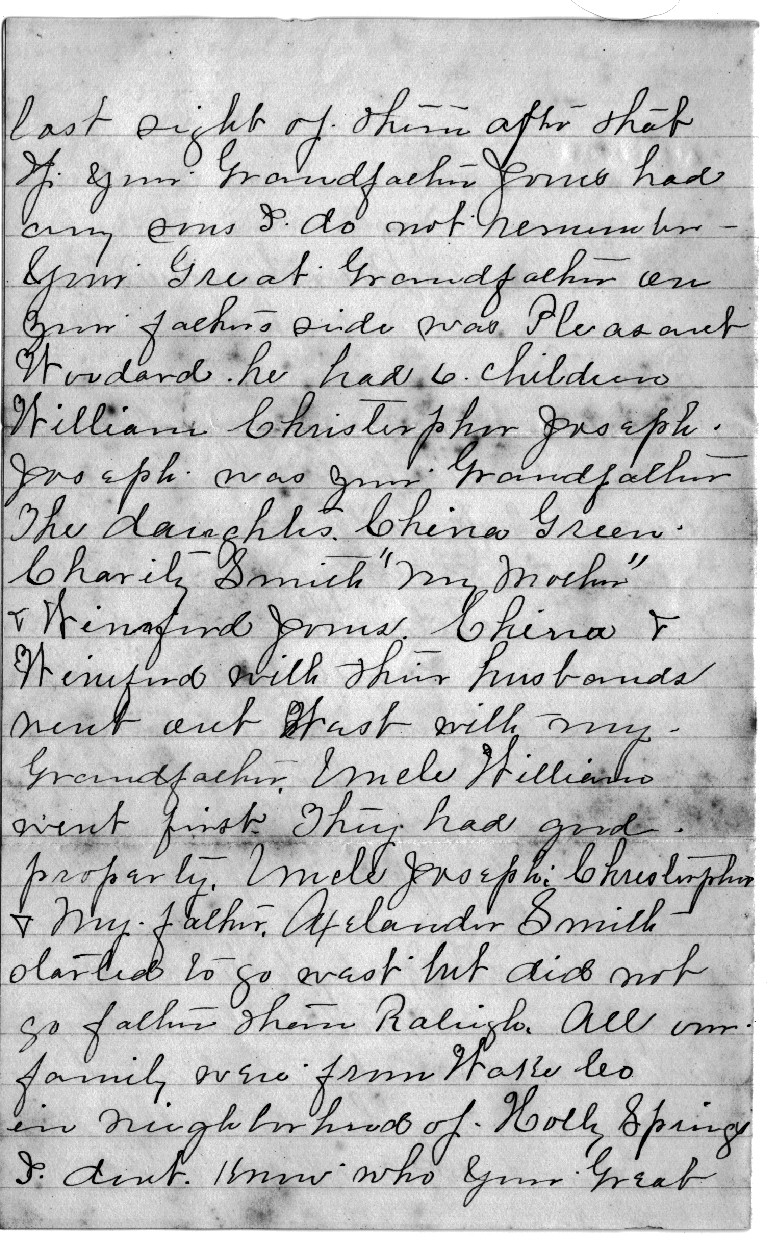 lost sight of them after that
If your Grandfather Jones had
any sons I do not remember -
Your Great Grandfather on
your father's side was Pleasant
Woodard. he had 6. children
William Christorpher Joseph.
Joseph was your Grandfather
The daughters. China Green.
Charity Smith "My Mother"
& Winiford Jones. China &
Winiford with their husbands
went out West with my.
Grandfather. Uncle William
went first. They had good.
property. Uncle Joseph: Christorpher
& My father. Axelander Smith
started to go west but did not
go father them Raleigh. All our.
family were from Wake Co
in neighborhood of. Holly Springs
I. dont. Know who Your Great